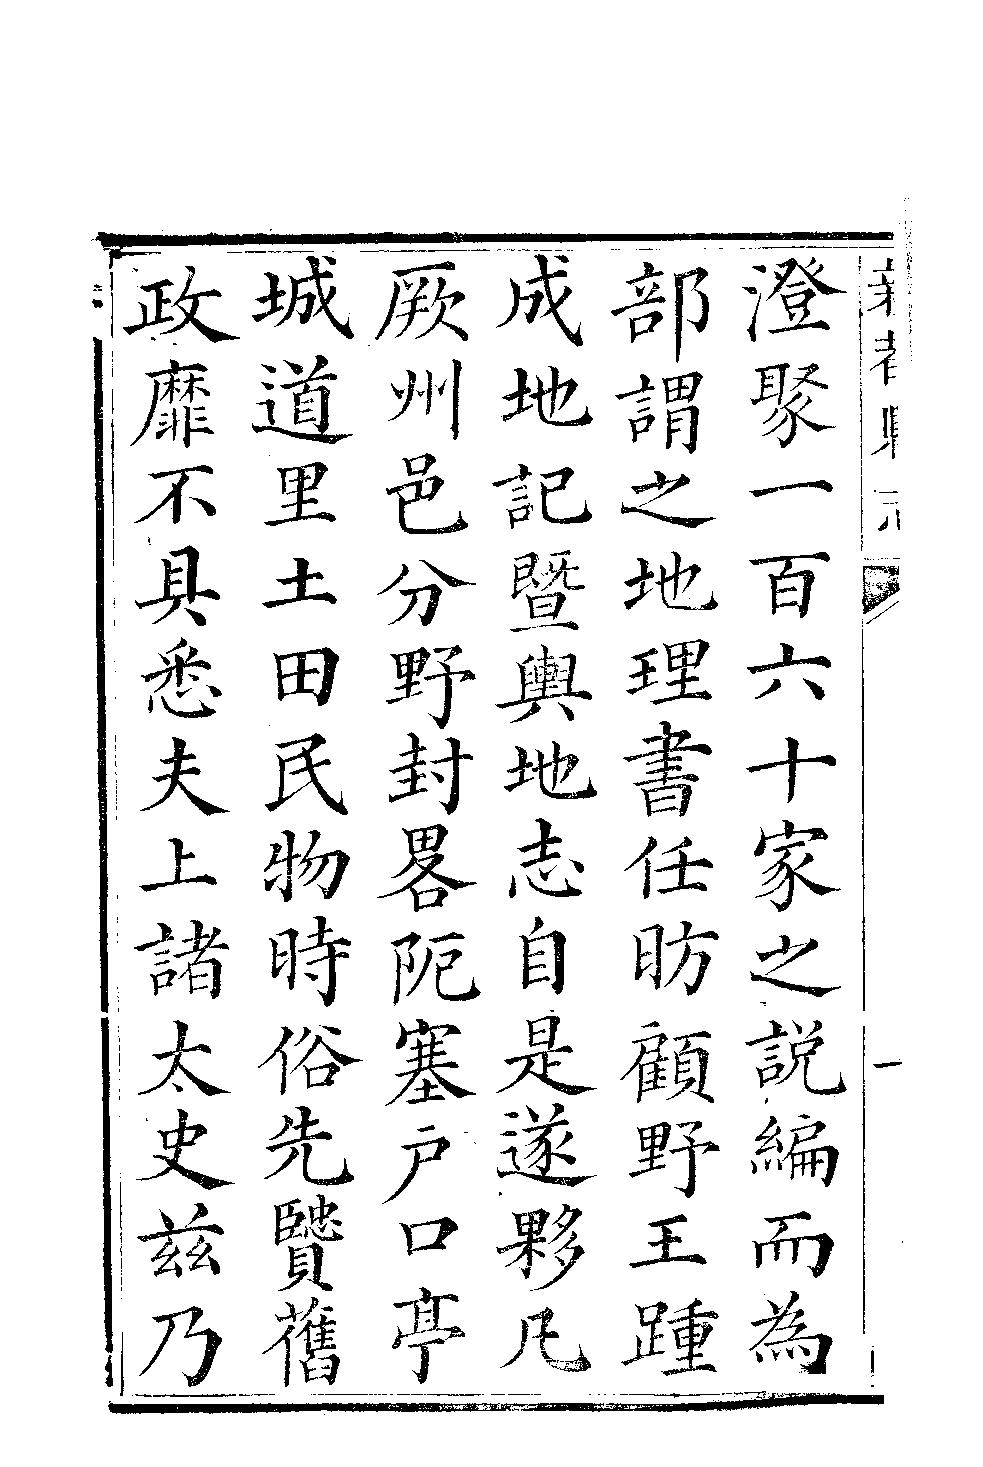 澄聚一百六十家之説編而為
部謂之地理書任昉顧野王踵
成地記暨輿地志自是遂夥凡
厥州邑分野封畧阨塞户口亭
城道里土田民物時俗先賢舊
政靡不具悉夫上諸太史兹乃